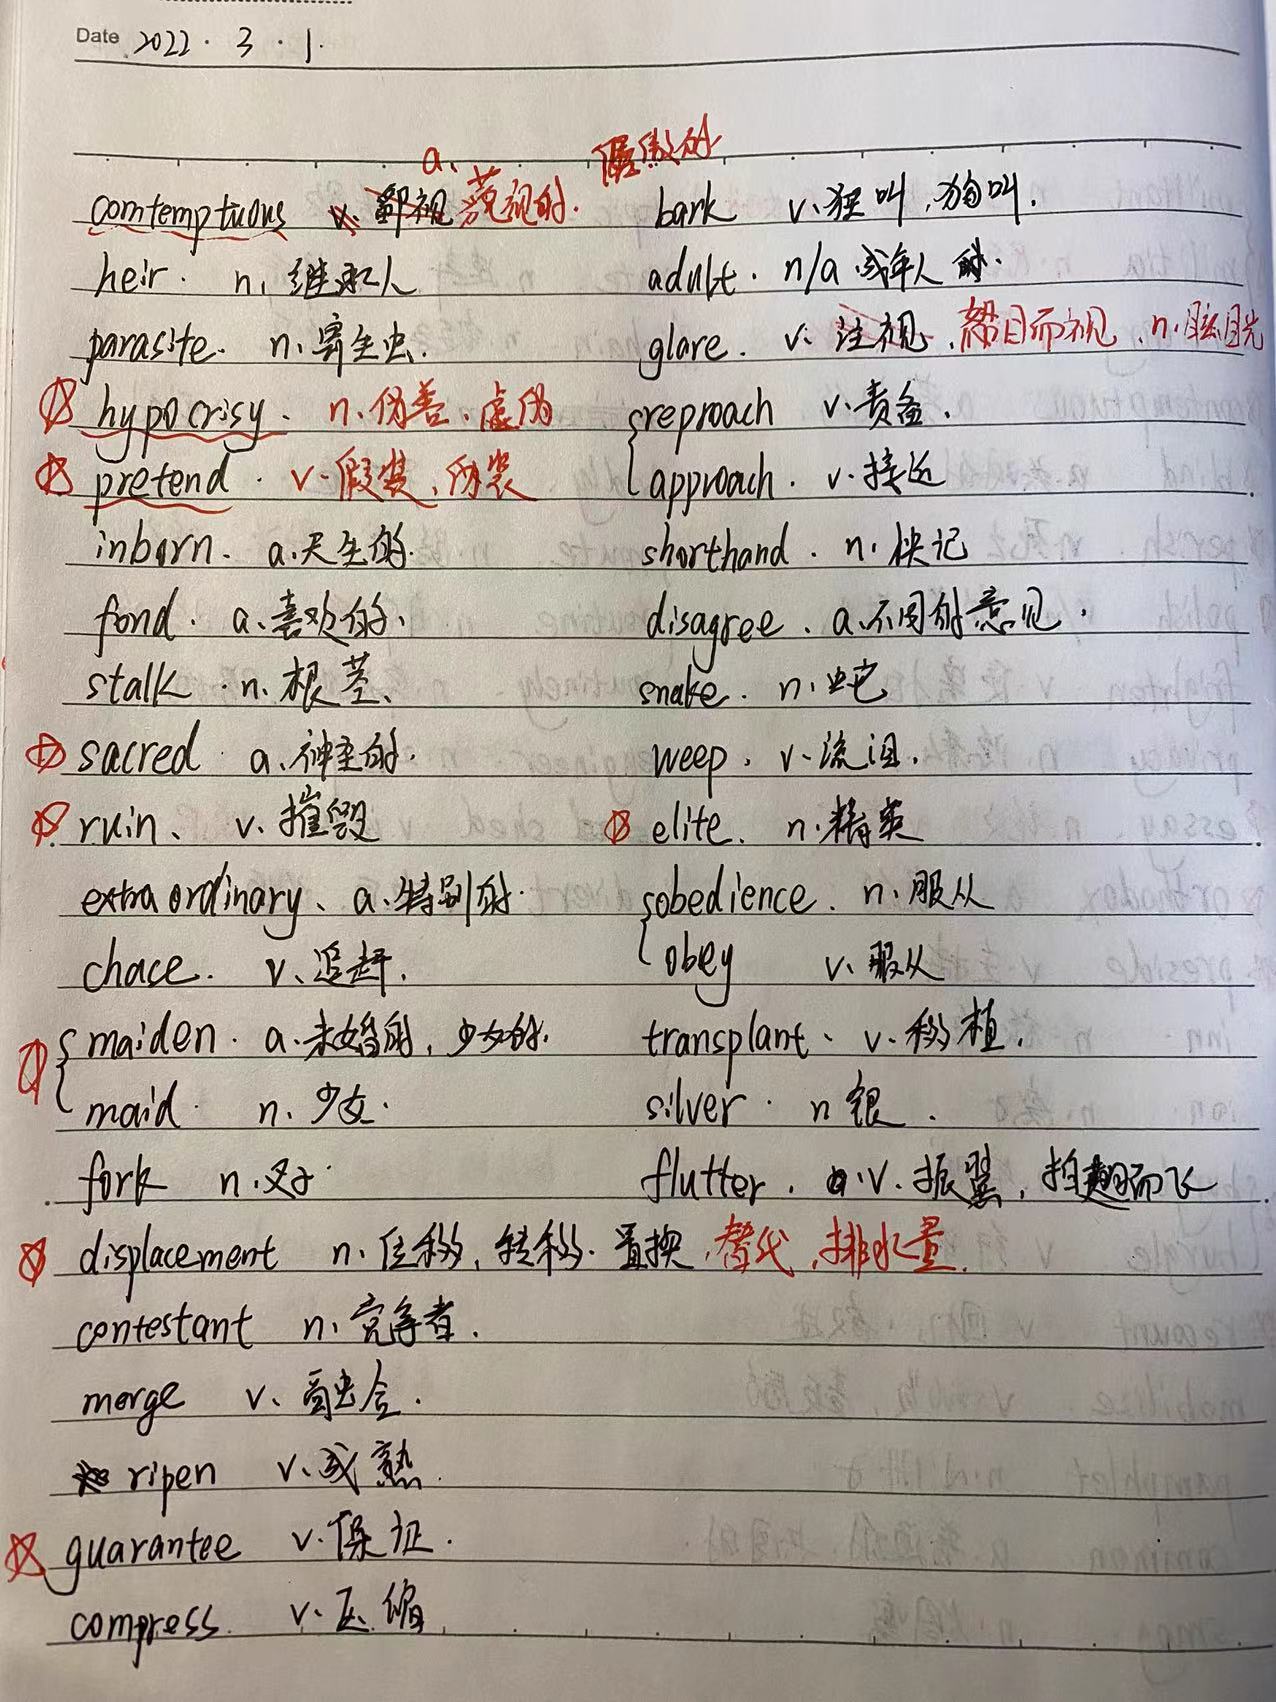 Date 2022 · 3 · 1.
a. 倨傲的
comtemptuous v. 鄙视 蔑视的.
heir. n. 继承人
parasite. n. 寄生虫.
hypocrisy. n. 伪善、虚伪
pretend. v. 假装、伪装
inborn. a. 天生的.
fond. a. 喜欢的.
stalk. n. 根茎、
sacred. a. 神圣的.
ruin、 v. 摧毁
extraordinary、 a. 特别的.
chace. v. 追赶.
maiden. a. 未婚的, 少女的.
maid. n. 少女.
fork n. 叉子.
displacement n. 位移, 转移. 置换, 替代, 排水量.
contestant n. 竞争者.
merge v. 融合.
ripen v. 成熟.
guarantee v. 保证.
compress v. 压缩
bark v. 狂叫, 狗叫.
adult. n/a. 成年人
glare. v. 注视, 怒目而视, n. 眩目光
reproach v. 责备.
approach. v. 接近
shorthand. n. 快记
disagree. a. 不同的意见.
snake. n. 蛇
weep. v. 流泪.
elite. n. 精英
obedience. n. 服从
obey v. 服从
transplant、 v. 移植.
silver. n 银.
flutter. v. 振翼, 拍翅而飞